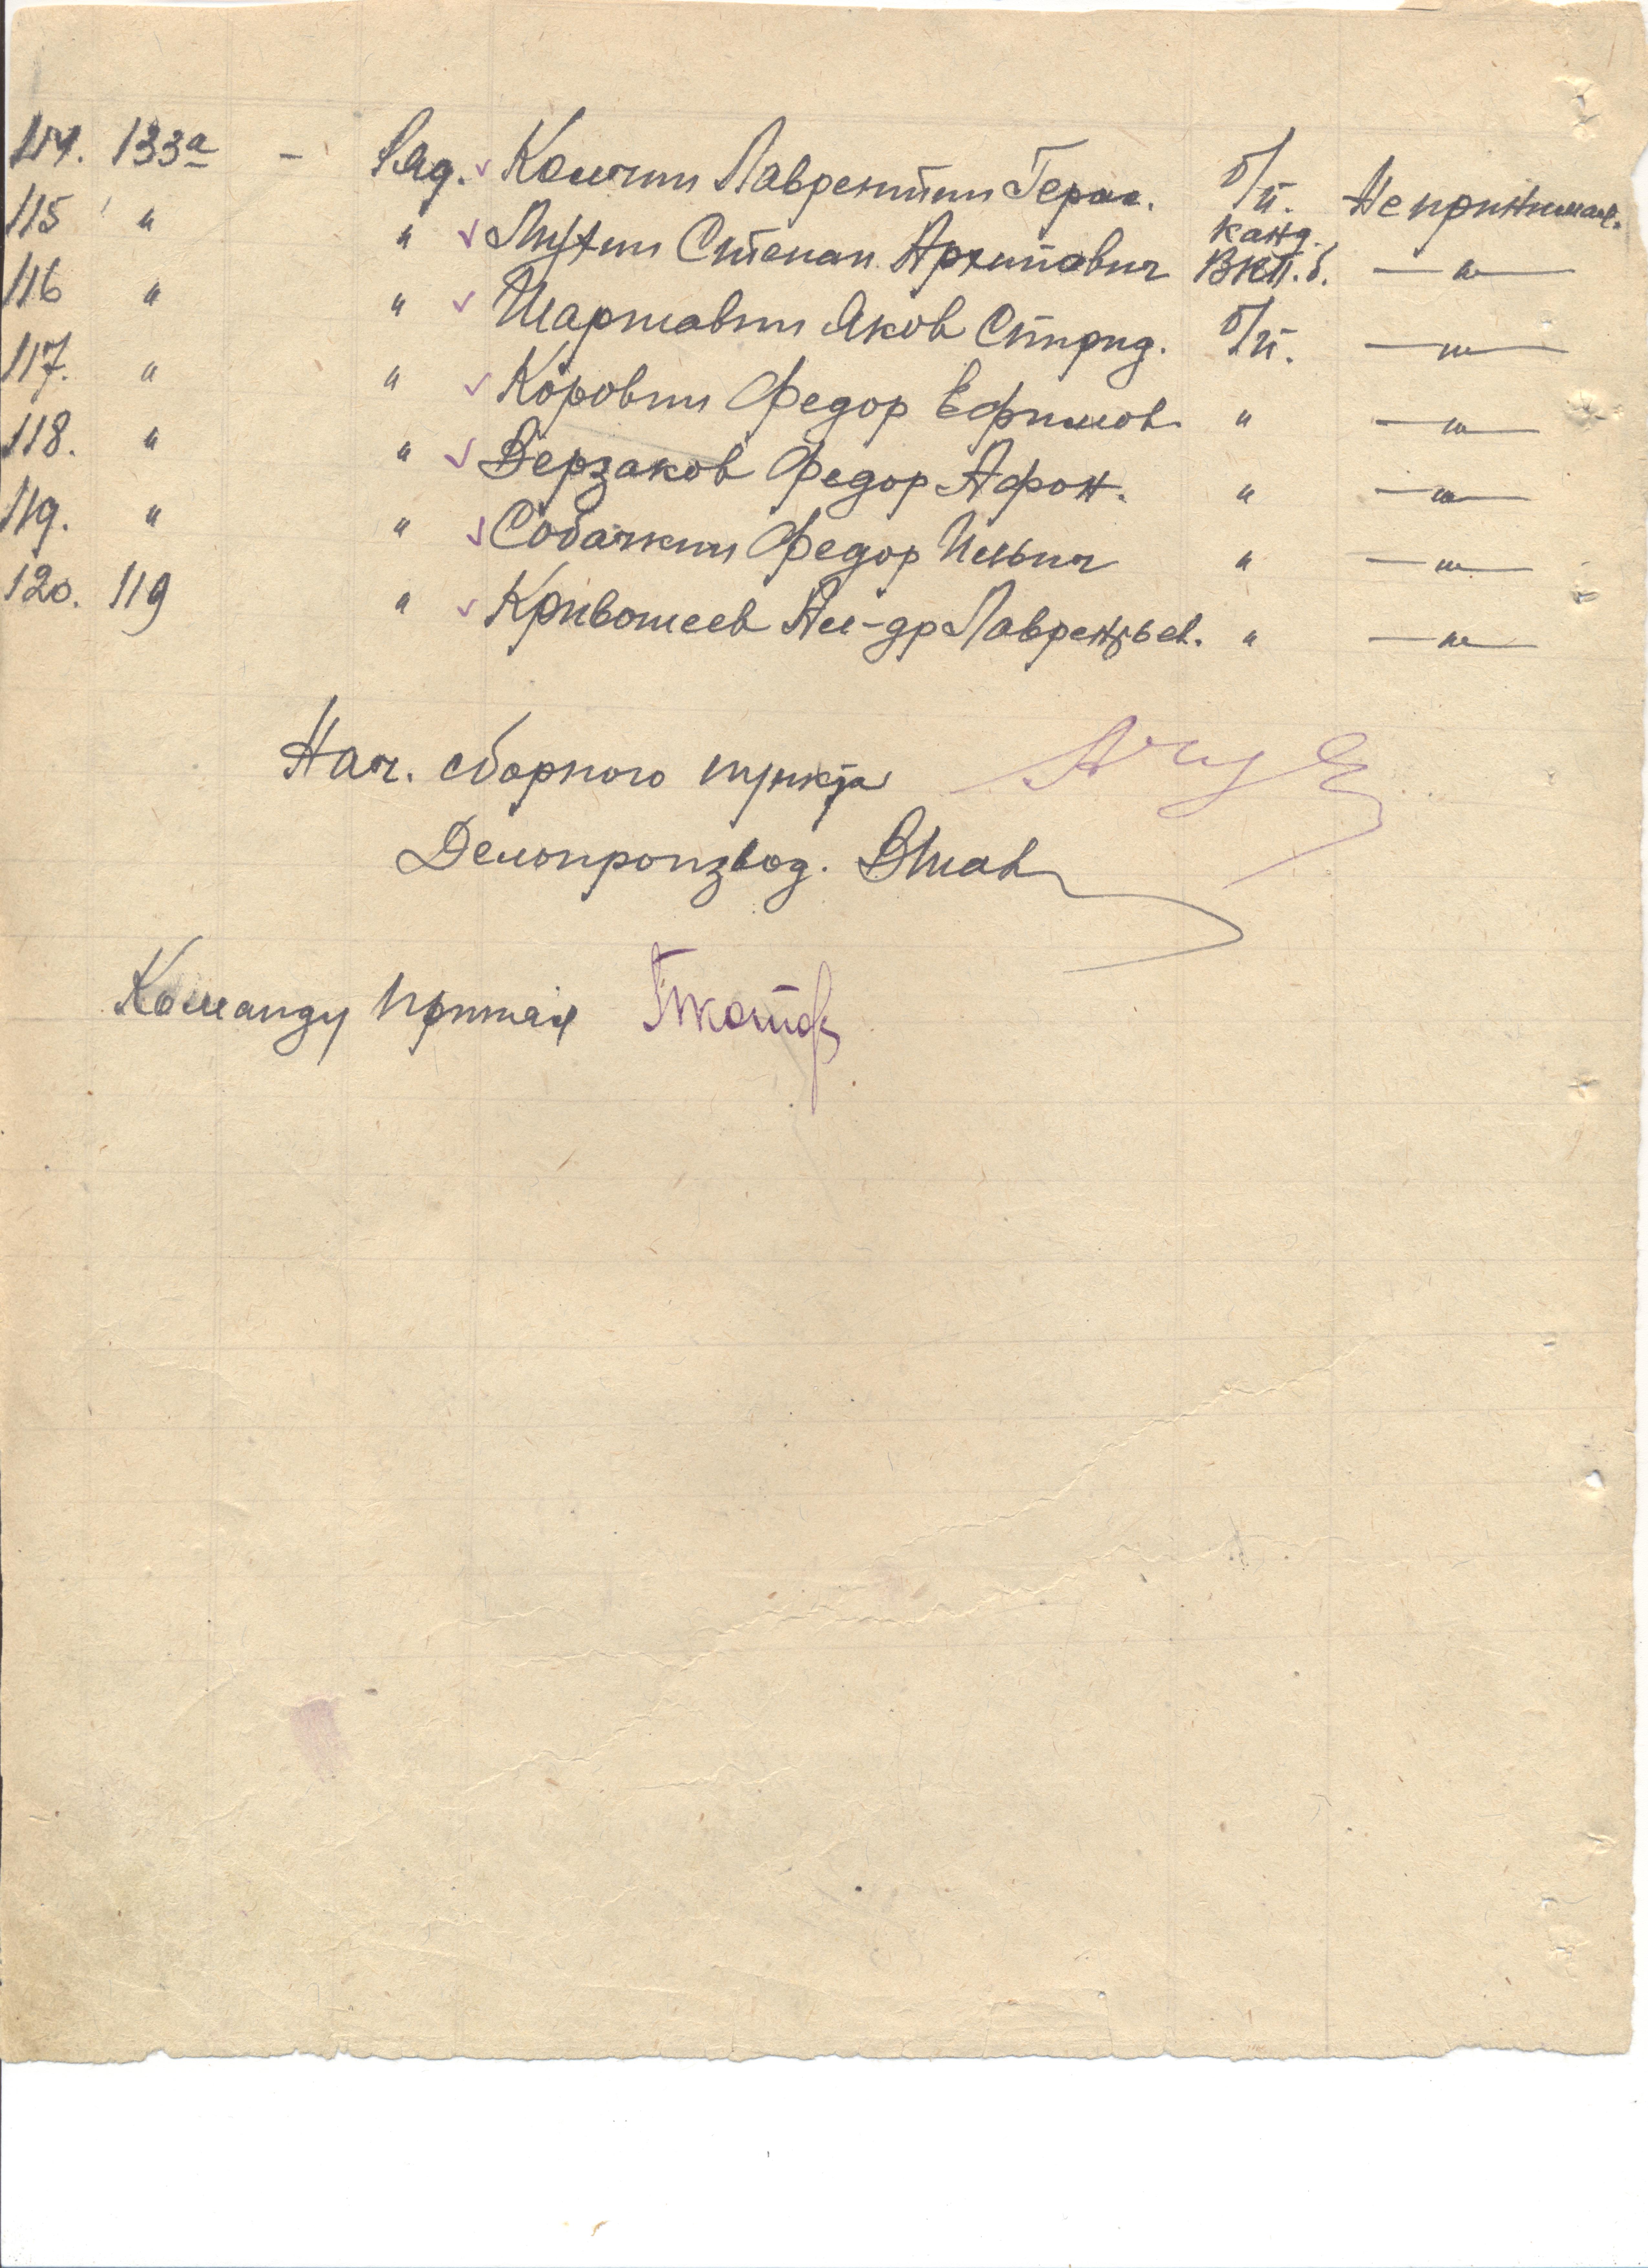 114. 133а - Ряд. Комчин Лаврентий Герас. б/п. Не принимал.
115 " " Степан Архипович канд. ВКП.б. —"—
116 " " Яков Спирид. б/п. —"—
117. " " Коровин Федор Ефимов. " —"—
118. " " Верзаков Федор Афон. " —"—
119. " " Собачкин Федор Ильич " —"—
120. 119 " Кривошеев Ал-др Лаврентьев. " —"—
Нач. сборного пункта
Делопроизвод.
Команду принял